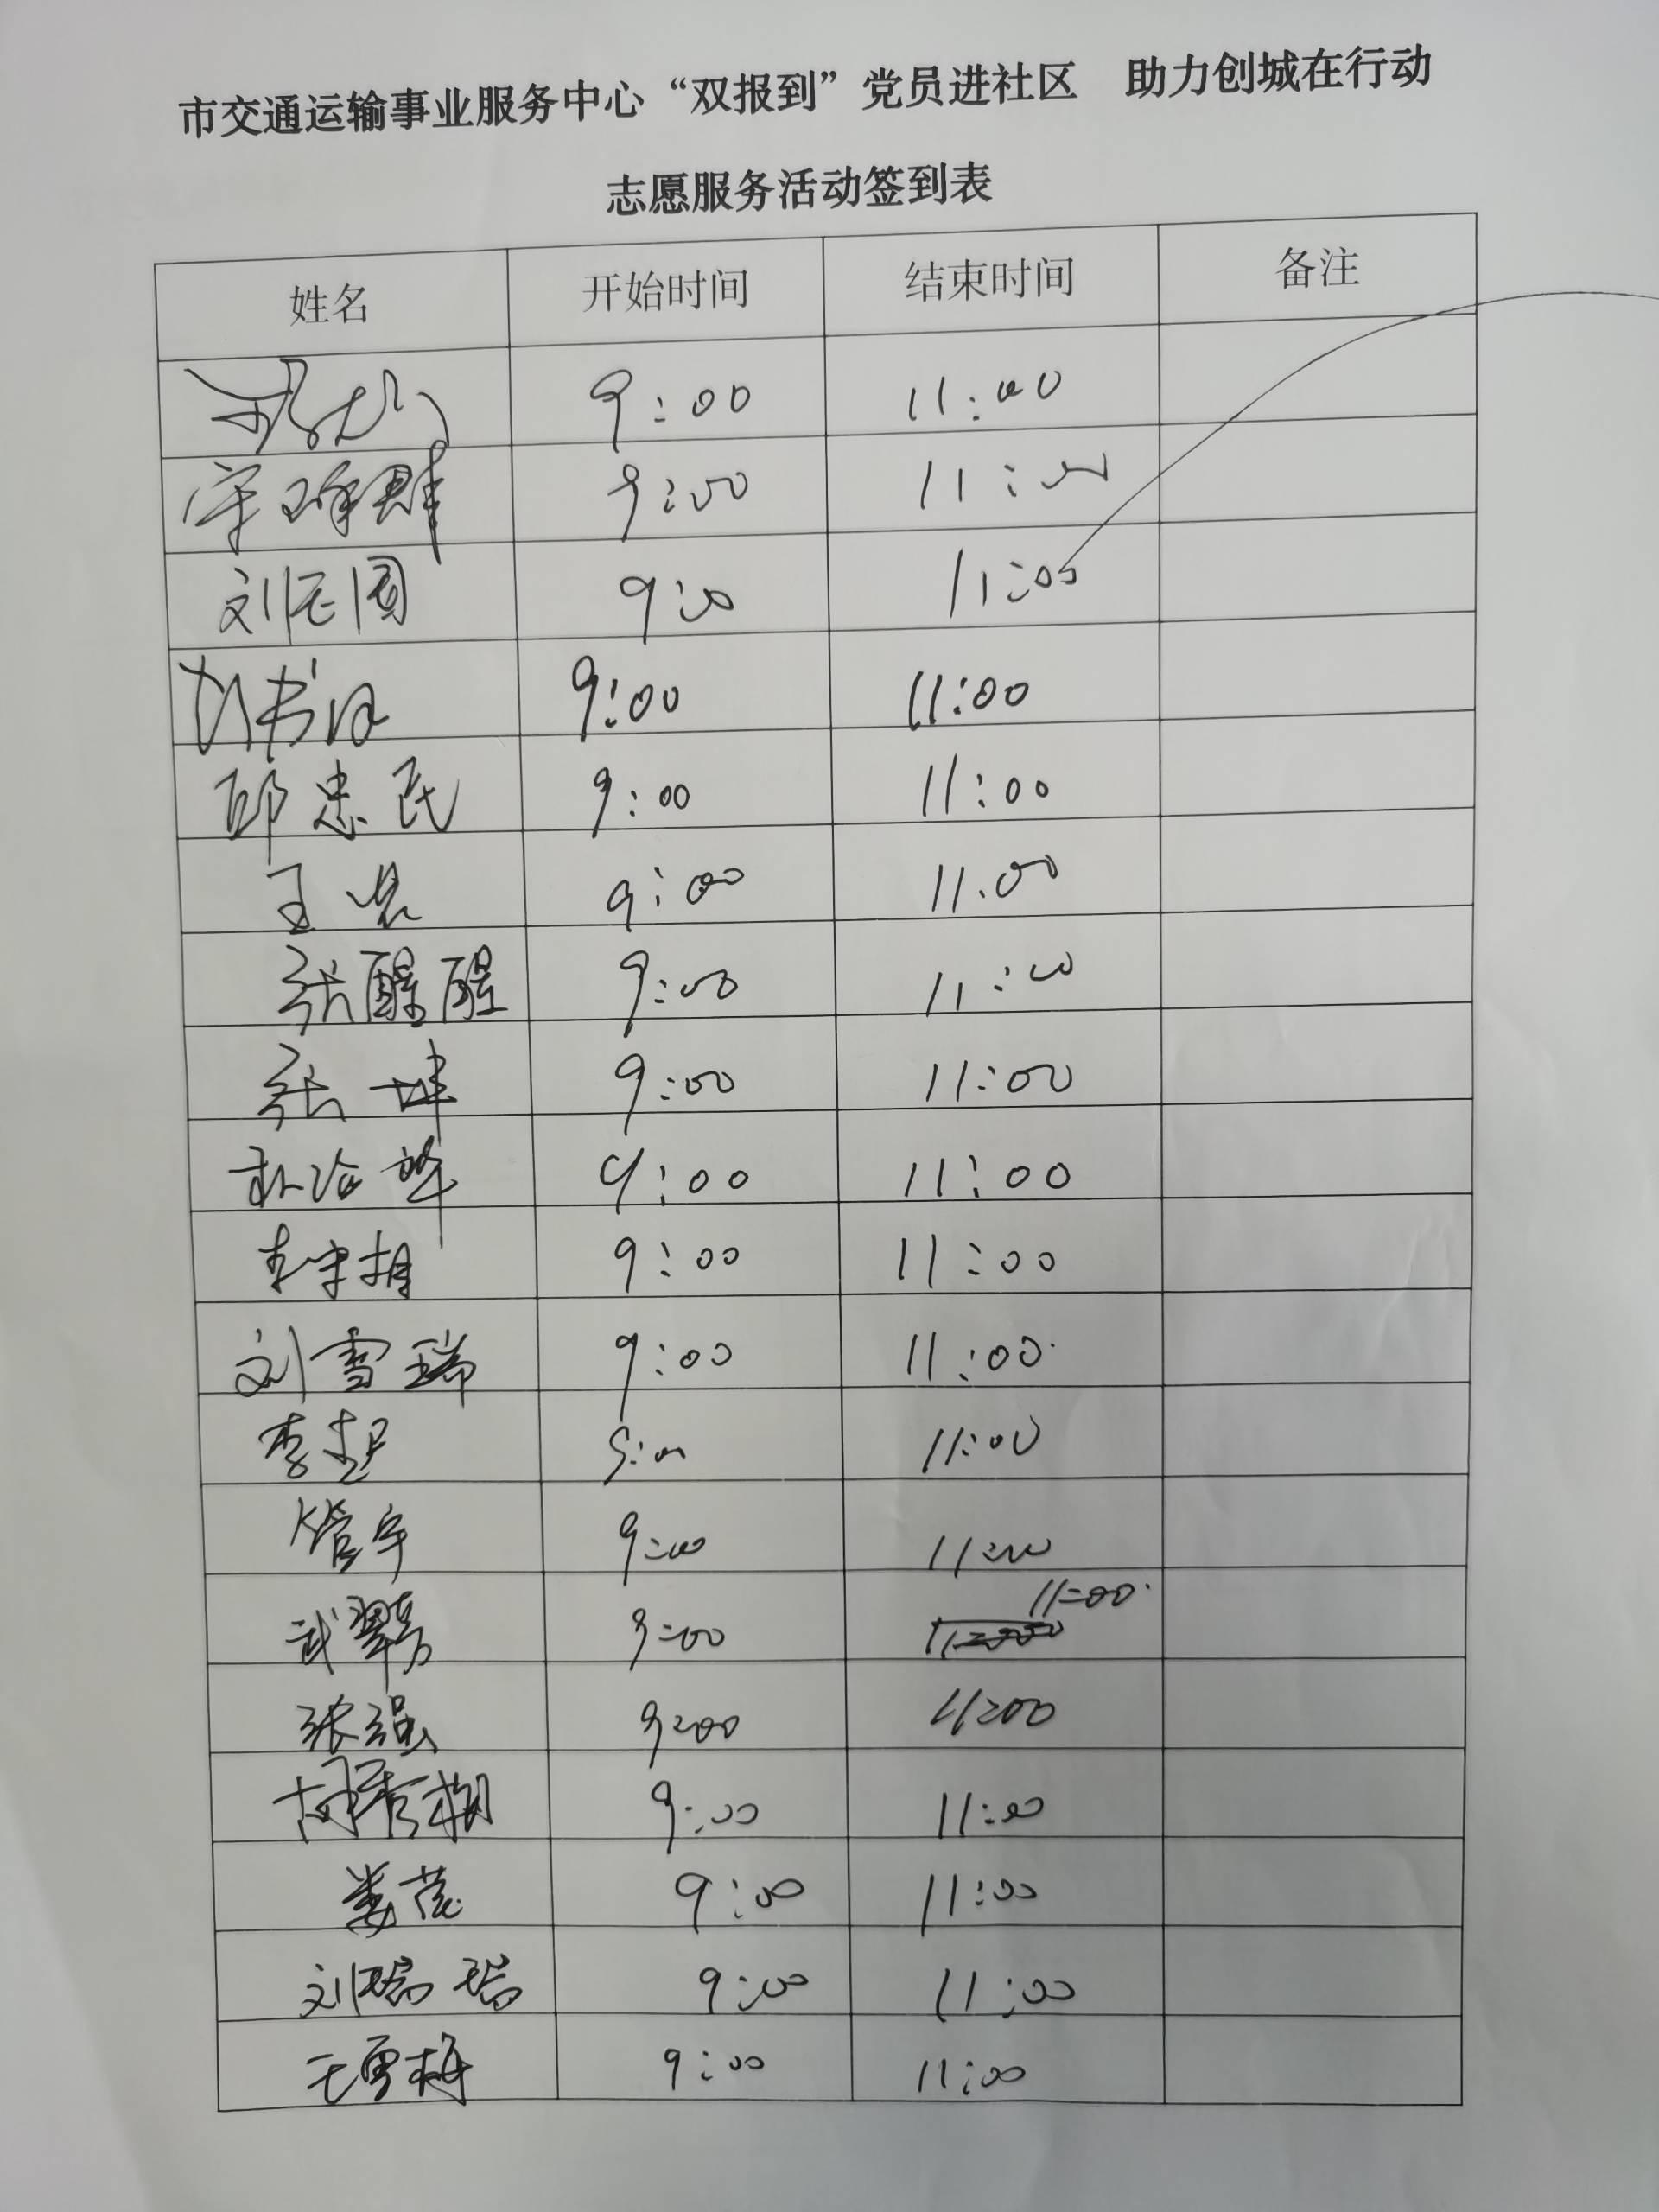 市交通运输事业服务中心“双报到”党员进社区 助力创城在行动
志愿服务活动签到表
姓名 开始时间 结束时间 备注
9:00 11:00
9:00 11:00
刘 9:00 11:00
刘书 9:00 11:00
邱忠民 9:00 11:00
王 9:00 11:00
张醒醒 9:00 11:00
张坤 9:00 11:00
9:00 11:00
9:00 11:00
刘雪瑞 9:00 11:00
李超 9:00 11:00
管宇 9:00 11:00
武翠芳 9:00 11:00
张强 9:00 11:00
胡秀梅 9:00 11:00
娄茂 9:00 11:00
刘瑞瑞 9:00 11:00
王雪梅 9:00 11:00